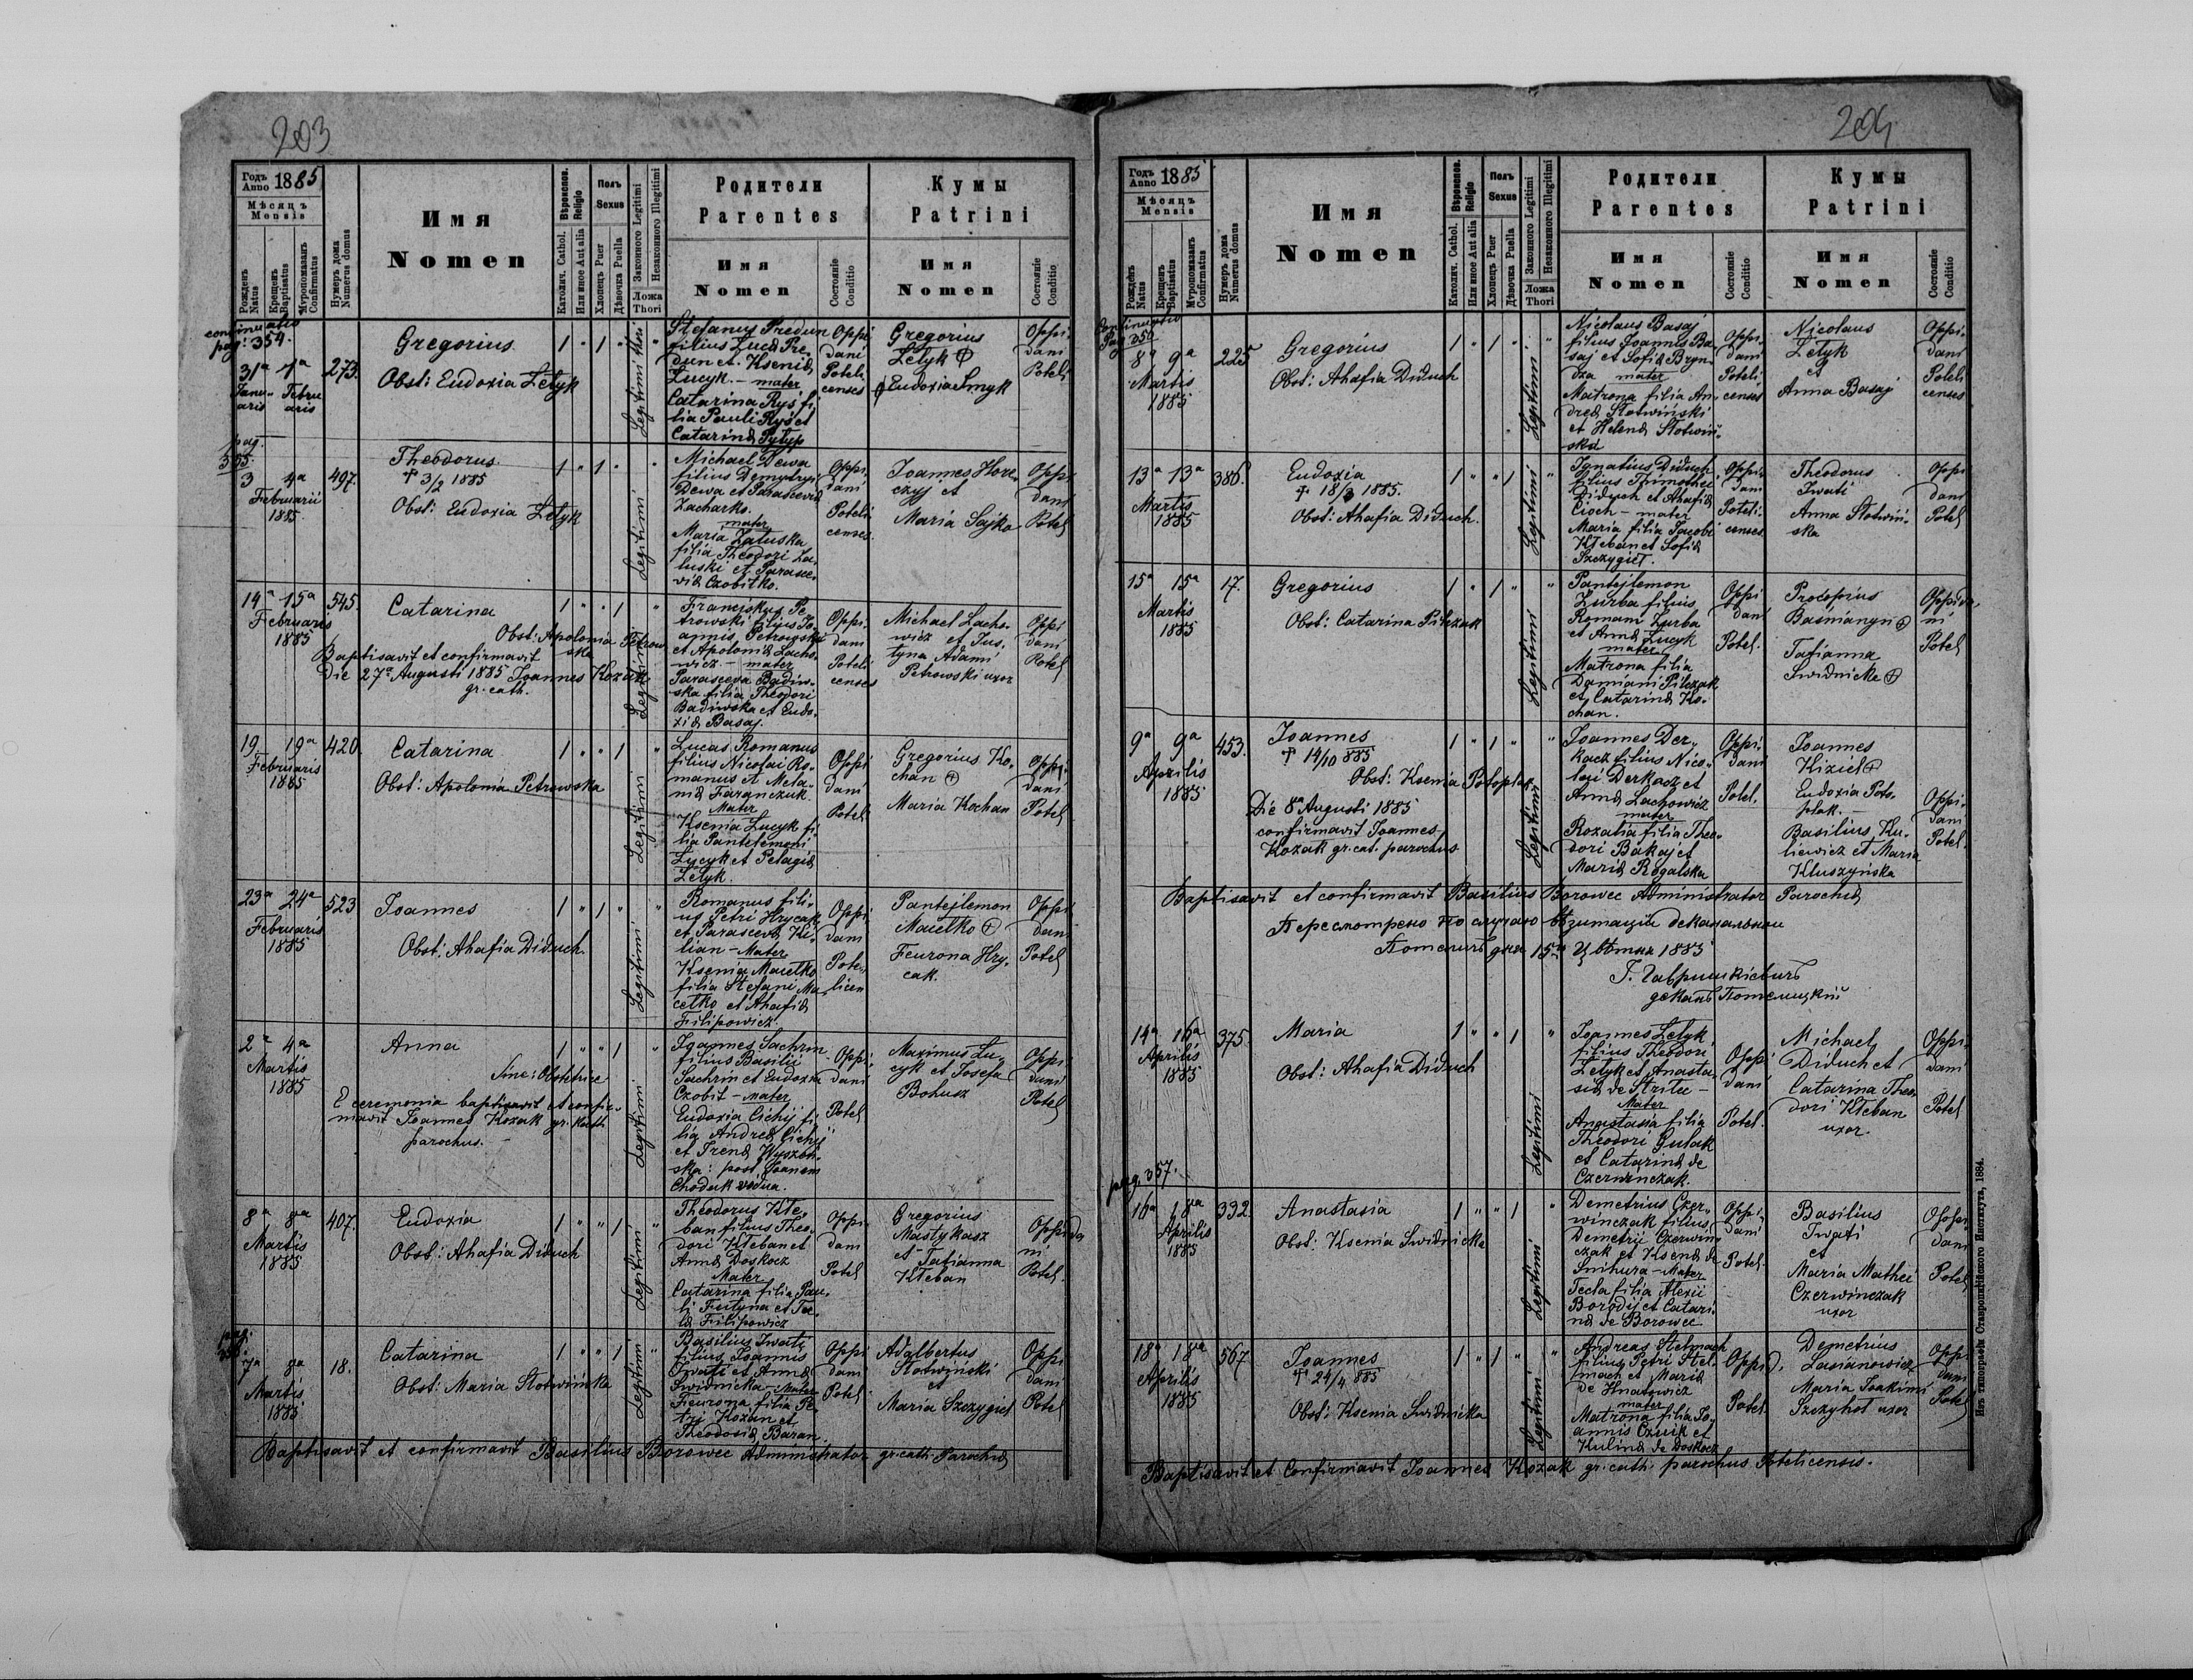 203
Годъ Anno 1885
Мѣсяцъ
Mensis
Рожденъ Natus
Крещенъ Baptisatus
Мѵропомазанъ Confirmatus
Нумеръ дома Numerus domus
Имя
Nomen
Вѣроиспов. Religio
Католич. Cathol.
Или иное Aut alia
Полъ
Sexus
Хлопецъ Puer
Дѣвочка Puella
Законного Legitimi
Незаконного Illegitimi
Ложа
Thori
Родители
Parentes
Имя
Nomen
Состоянiе
Conditio
Кумы
Patrini
Имя
Nomen
Состоянiе
Conditio
continuatio
pag: 354.
31ª 1ª
Janu- Febru
aris aris
273.
Gregorius
Obst: Eudoxia Zełyk
1 " 1 " "
Legitimi thori
Stefanus Predun
filius Lucæ Pre-
dun et Kseniæ
Łucyk. - mater
Catarina Ryś fi-
lia Pauli Ryś et
Catarinæ Pyłyp
Oppi
dani
Poteli
censes
Gregorius
Zełyk
Eudoxia Smyk
Oppi-
dani
Poteli
pag.
355.
3 4ª
Februarii
1885.
497.
Theodorus
† 3/2 1885
Obst: Eudoxia Zełyk
1 " 1 " "
Legitimi
Michael Dewa
filius Demytryj
Dewa et Parasceviæ
Zacharko.
mater
Maria Załuska
filia Theodori Za-
łuski et Parasce-
viæ Czobitko.
Oppi
dani
Poteli
censes
Joannes Hore-
czyj et
Maria Sajko
Oppi
dani
Potel
14ª 15ª
Februaris
1885
545.
Catarina
Obst: Apolonia Petrow-
ska
Baptisavit et confirmavit
Die 27ª Augusti 1885 Joannes Kozak
gr. cath.
1 " " 1 "
Legitimi
Franciskus Pe-
trowski filius Jo-
annis Petrowski
et Apoloniæ Lacho-
wicz - mater
Parasceva Badiw-
ska filia Theodori
Badiwska et Eudo-
xiæ Basaj.
Oppi-
dani
Poteli
censes
Michael Lacho-
wicz et Jus-
tyna Adami
Petrowski uxor
Oppi
dani
Potel
19 19ª
Februaris
1885
420.
Catarina
Obst: Apolonia Petrowska
1 " " 1 "
Legitimi
Lucas Romanus
filius Nicolai Ro-
manus et Mela-
niæ Faranczuk.
Mater
Ksenia Łucyk fi-
lia Pantelemoni
Łycyk et Pelagiæ
Zełyk.
Oppi
dani
Potel
Gregorius Ko-
chan
Maria Kochan
Oppi-
dani
Potel
23ª 24ª
Februaris
1885
523
Joannes
Obst: Ahafia Diduch.
1 " 1 " "
Legitimi
Romanus fili-
us Petri Hrycak
et Parascevæ Ki-
lian - Mater
Ksenia Macełko
filia Stefani Ma-
cełko et Ahafiæ
Filipowicz
Oppi
dani
Pote-
licen
Pantejlemon
Macełko
Feurona Hry-
cak.
Oppi
dani
Potel
2ª 4ª
Martis
1885
Anna
Sine: Obstetrice
E ceremonia baptisavit et confir-
mavit Joannes Kozak gr. kath
parochus.
1 " " 1 "
Legitimi
Joannes Sachrin
filius Basilii
Sachrin et Eudoxiæ
Czobit - mater
Eudoxia Cichij fi-
lia Andreæ Cichij
et Irenæ Wyszoń-
ska: post Joanem
Choduk vidua.
Oppi
dani
Potel
Maximus Łu-
cyk et Josefa
Bohusz
Oppi
dani
Potel
8ª 8ª
Martis
1885
407.
Eudoxia
Obst: Ahafia Diduch
1 " " 1 "
Legitimi
Theodorus Kłe-
ban filius Theo-
dori Kłeban et
Annæ Doskocz
Mater
Catarina filia Pau-
li Futyna et Te-
læ Filipowicz
Oppi
dani
Potel
Gregorius
Mastykasz
et Tatianna
Kłeban
Oppida
ni
Potel.
pag.
7ª 8ª
Martis
1885
18.
Catarina
Obst: Maria Słotwińska
1 " " 1 "
Legitimi
Basilius Iwati
filius Joannis
Iwati et Annæ
Swidnicka - Mater
Feurona filia Pe-
tri Kozbin et
Theodosiæ Baran.
Oppi
dani
Potel
Adalbertus
Słotwiński
et
Maria Szczygieł
Oppi
dani
Potel
Baptisavit et confirmavit Basilius Borowec Administrator gr. cath: Parochiæ
204
Годъ Anno 1885
Мѣсяцъ
Mensis
Рожденъ Natus
Крещенъ Baptisatus
Мѵропомазанъ Confirmatus
Нумеръ дома Numerus domus
Имя
Nomen
Вѣроиспов. Religio
Католич. Cathol.
Или иное Aut alia
Полъ
Sexus
Хлопецъ Puer
Дѣвочка Puella
Законного Legitimi
Незаконного Illegitimi
Ложа
Thori
Родители
Parentes
Имя
Nomen
Состоянiе
Conditio
Кумы
Patrini
Имя
Nomen
Состоянiе
Conditio
Continuatio
Pag. 356
8ª 9ª
Martis
1885
225
Gregorius
Obst: Ahafia Diduch
1 " 1 " "
Legitimi
Nicolaus Basaj
filius Joannis Ba-
saj et Sofiæ Bryn-
dza mater
Matrona filia An-
dreæ Słotwiński
et Helenæ Słotwiń-
ska
Oppi-
dani
Poteli
censes
Nicolaus
Zełyk
et
Anna Basaj
Oppi-
dani
Poteli
censes
13ª 13ª
Martis
1885
386.
Eudoxia
† 18/3 1885.
Obst: Ahafia Diduch.
1 " " 1 "
Legitimi
Ignatius Diduch
filius Thimothei
Didych et Ahafiæ
Cioch - mater
Maria filia Jacobi
Kłeban et Sofiæ
Szczygieł.
Oppi-
dani
Poteli-
censes
Theodorus
Iwati
Anna Słotwiń-
ska
Oppi
dani
Potel
15ª 15ª
Martis
1885
17.
Gregorius
Obst: Catarina Pilczak
1 " 1 " "
Legitimi
Pantejlemon
Zurba filius
Romani Zurba
et Annæ Łucyk
mater
Matrona filia
Damiani Pilczak
et Catarinæ Ko-
chan.
Oppi
dani
Potel.
Procopius
Basmanyn
Tatianna
Swidnicka
Oppida-
ni
Potel
9ª 9ª
Aprilis
1885
453.
Joannes
† 14/10 885
Obst: Ksenia Potoplak
Die 8ª Augusti 1885
confirmavit Joannes
Kozak gr. cat. parochus
1 " 1 " "
Legitimi
Joannes Der-
kacz filius Nico-
lai Derkacz et
Annæ Lachowicz
mater
Rozalia filia Theo-
dori Bakaj et
Mariæ Rogalska
Oppi-
dani
Potel.
Joannes
Kizieł
Eudoxia Poto-
plak. -
Basilius Ku-
liewicz et Maria
Kłuszyńska
Oppi-
dani
Potel.
Baptisavit et confirmavit Basilius Borowec Administrator Parochiæ
Пересмотрено по случаю визитаціи деканальной
Потеличъ дня 15 Цвѣтня 1885
деканъ Потелицкій
14ª 16ª
Aprilis
1885
375.
Maria
Obst: Ahafia Diduch
1 " " 1 "
Legitimi
Joannes Zełyk
filius Theodori
Zełyk et Anasta-
siæ de Strilec -
Mater
Anastasia filia
Theodori Gulak
et Catarinæ de
Czerwinczak.
Oppi
dani
Potel.
Michael
Diduch et
Catarina Theo-
dori Kłeban
uxor.
Oppi-
dani
Potel
pag. 357.
16ª 18ª
Aprilis
1885
332.
Anastasia
Obst: Ksenia Swidnicka
1 " " 1 "
Legitimi
Demetrius Czer-
winczak filius
Demetrii Czerwin-
czak et Kseniæ de
Snihura - Mater
Tecla filia Alexii
Borodij et Catari-
næ de Borowec.
Oppi-
dani
Potel
Basilius
Iwati
et
Maria Mathei
Czerwinczak
uxor
Oppi-
dani
Potel
18ª 18ª
Aprilis
1885
567
Joannes
† 24/4 885
Obst: Ksenia Swidnicka
1 " 1 " "
Legitimi
Andreas Stelmach
filius Petri Stel-
mach et Mariæ
de Hnatowicz
mater
Matrona filia Jo-
annis Czuik et
Kulinæ de Doskocz
Oppid.
Potel
Demetrius
Lasianowicz
Maria Joakimi
Szczyhoł uxor
Oppi
dani
Potel
Baptisavit et Confirmavit Joannes Kozak gr. cath. parochus Potelicensis.
Изъ типографіи Ставропигійского Института, 1884.